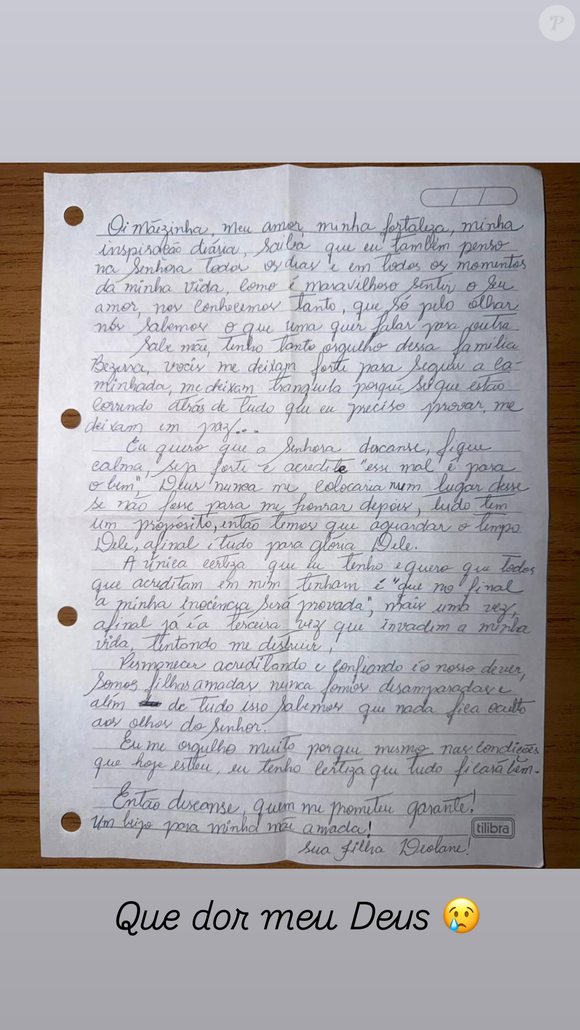 P
Oi mãezinha, meu amor, minha fortaleza, minha
inspiração diária, saiba que eu também penso
na Senhora todos os dias e em todos os momentos
da minha vida, como é maravilhoso sentir o seu
amor, nos conhecemos tanto, que só pelo olhar
nós sabemos o que uma quer falar para outra.
Sabe mãe, tenho tanto orgulho dessa família
Bezerra, vocês me deixam forte para seguir a ca-
minhada, me deixam tranquila porque sei que estão
correndo atrás de tudo que eu preciso provar, me
deixam em paz...
Eu quero que a Senhora descanse, fique
calma, seja forte e acredite "esse mal é para
o bem", Deus nunca me colocaria num lugar desse
se não fosse para me honrar depois, tudo tem
um propósito, então temos que aguardar o tempo
Dele, afinal é tudo para glória Dele.
A única certeza que eu tenho e quero que todos
que acreditam em mim tenham é "que no final
a minha inocência será provada", mais uma vez,
afinal já é a terceira vez que invadem a minha
vida, tentando me destruir,
Permanecer acreditando e confiando é o nosso dever,
somos filhas amadas nunca fomos desamparadas e
além de tudo isso sabemos que nada fica oculto
aos olhos do Senhor.
Eu me orgulho muito porque mesmo nas condições
que hoje estou, eu tenho certeza que tudo ficará bem.
Então descanse, quem me prometeu garante!
Um beijo para minha mãe amada!
tilibra
Sua filha Deolane!
Que dor meu Deus 😢